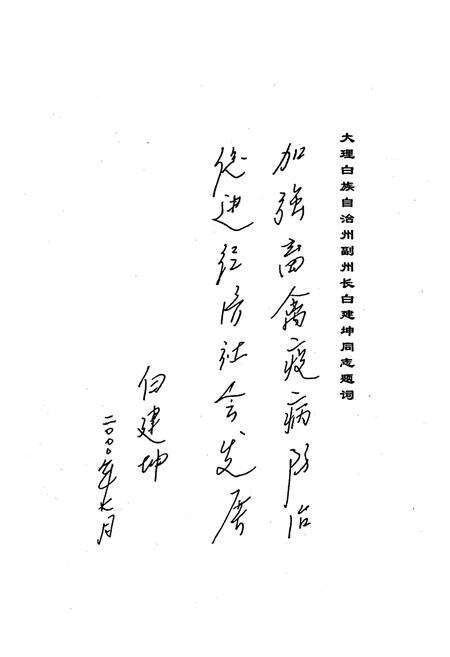 大理白族自治州副州长白建坤同志题词
加强畜禽疫病防治
促进经济社会发展
白建坤
二〇〇〇年七月